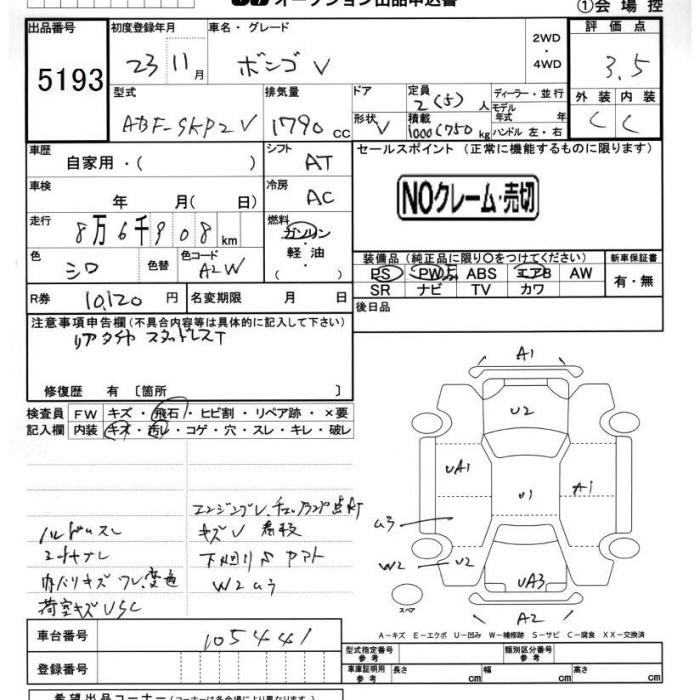 オークション出品申込書
①会場控
出品番号
5193
初度登録年月
23 11月
車名・グレード
ボンゴ V
2WD
・
4WD
評価点
3.5
外装 内装
C C
型式
ABF-SKP2V
排気量
1790 cc
ドア
形状 V
定員
2(5)人
積載
1000(750)kg
ディーラー・並行
モデル年式 年
ハンドル 左・右
車歴
自家用・( )
シフト
AT
セールスポイント (正常に機能するものに限ります)
NOクレーム・売切
車検
年 月( 日)
冷房
AC
走行
8万6千908km
燃料
ガソリン
・
軽油
( )
色
シロ
色替
色コード
A2W
装備品 (純正品に限り○をつけてください)
PS PW ABS エアB AW
SR ナビ TV カワ
新車保証書
有・無
R券 10,120円
名変期限 月 日
後日品
注意事項申告欄(不具合内容等は具体的に記入して下さい)
リアタイヤ スタッドレス
修復歴 有〔箇所 〕
検査員記入欄
FW キズ・飛石・ヒビ割・リペア跡・×要
内装 キズ・汚レ・コゲ・穴・スレ・キレ・破レ
ハンドルスレ
内バリキズ ワレ、変色
荷室キズ USC
キズ V 看板
下回りS
W2 U3
A1
U2
UA1
A1
U1
U3
W2
U2
UA3
A2
スペア
A-キズ E-エクボ U-凹み W-補修跡 S-サビ C-腐食 XX-交換済
車台番号
105441
登録番号
型式指定番号
参考
類別区分番号
参考
車庫証明用
参考
長さ cm 幅 cm 高さ cm
希望出品コーナー(コーナーは各会場により異なります)